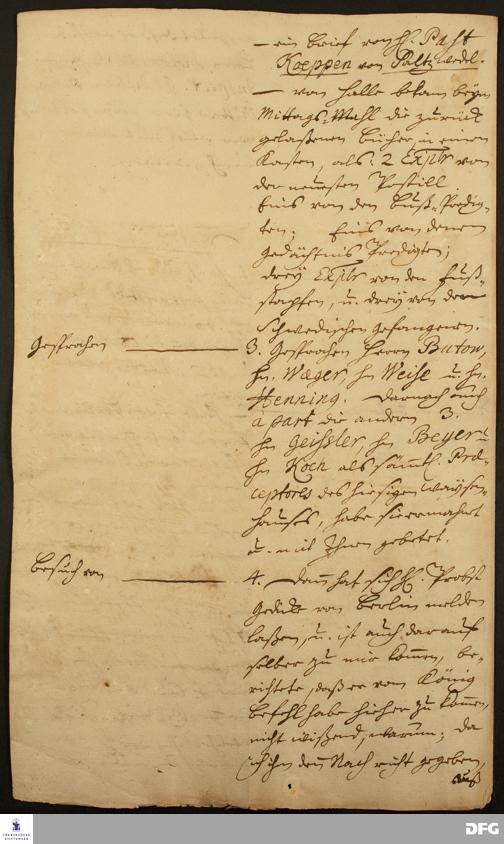 – ein Brief von H. Past
Koeppen von Saltzwedel.
– von Halle bekam beym
Mittags-Mahl die zurück
gelaßenen Bücher, in einem
Kasten, als: 2 Expls von
der neuesten Postill
Eins von den Buß-Predig-
ten. Eins von denen
Gedächtnis Predigten;
drey Expls von den Fuß-
stapfen, u. drey von den
Schwedischen gefangenen.
Gesprochen
3. Gesprochen Herrn Butow,
hn. Wæger, hn Weise u. hn.
Henning. Darnach auch
à part die andern 3.
hn Geissler, hn Beyer u
hn Koch als sämtl. Præ-
ceptores des hiesigen Waysen-
hauses, habe sie ermahnt
u. mit Ihnen gebetet.
Besuch von
4. Dann hat sich H. Probst
Gedike von Berlin melden
laßen, u. ist auch darauf
selber zu mir kommen, be-
richtete, daß er vom König
Befehl habe hieher zu kommen,
nicht wißend, warum; da
ich ihn denn Nachricht gegeben,
FRANCKESCHE
STIFTUNGEN
DFG